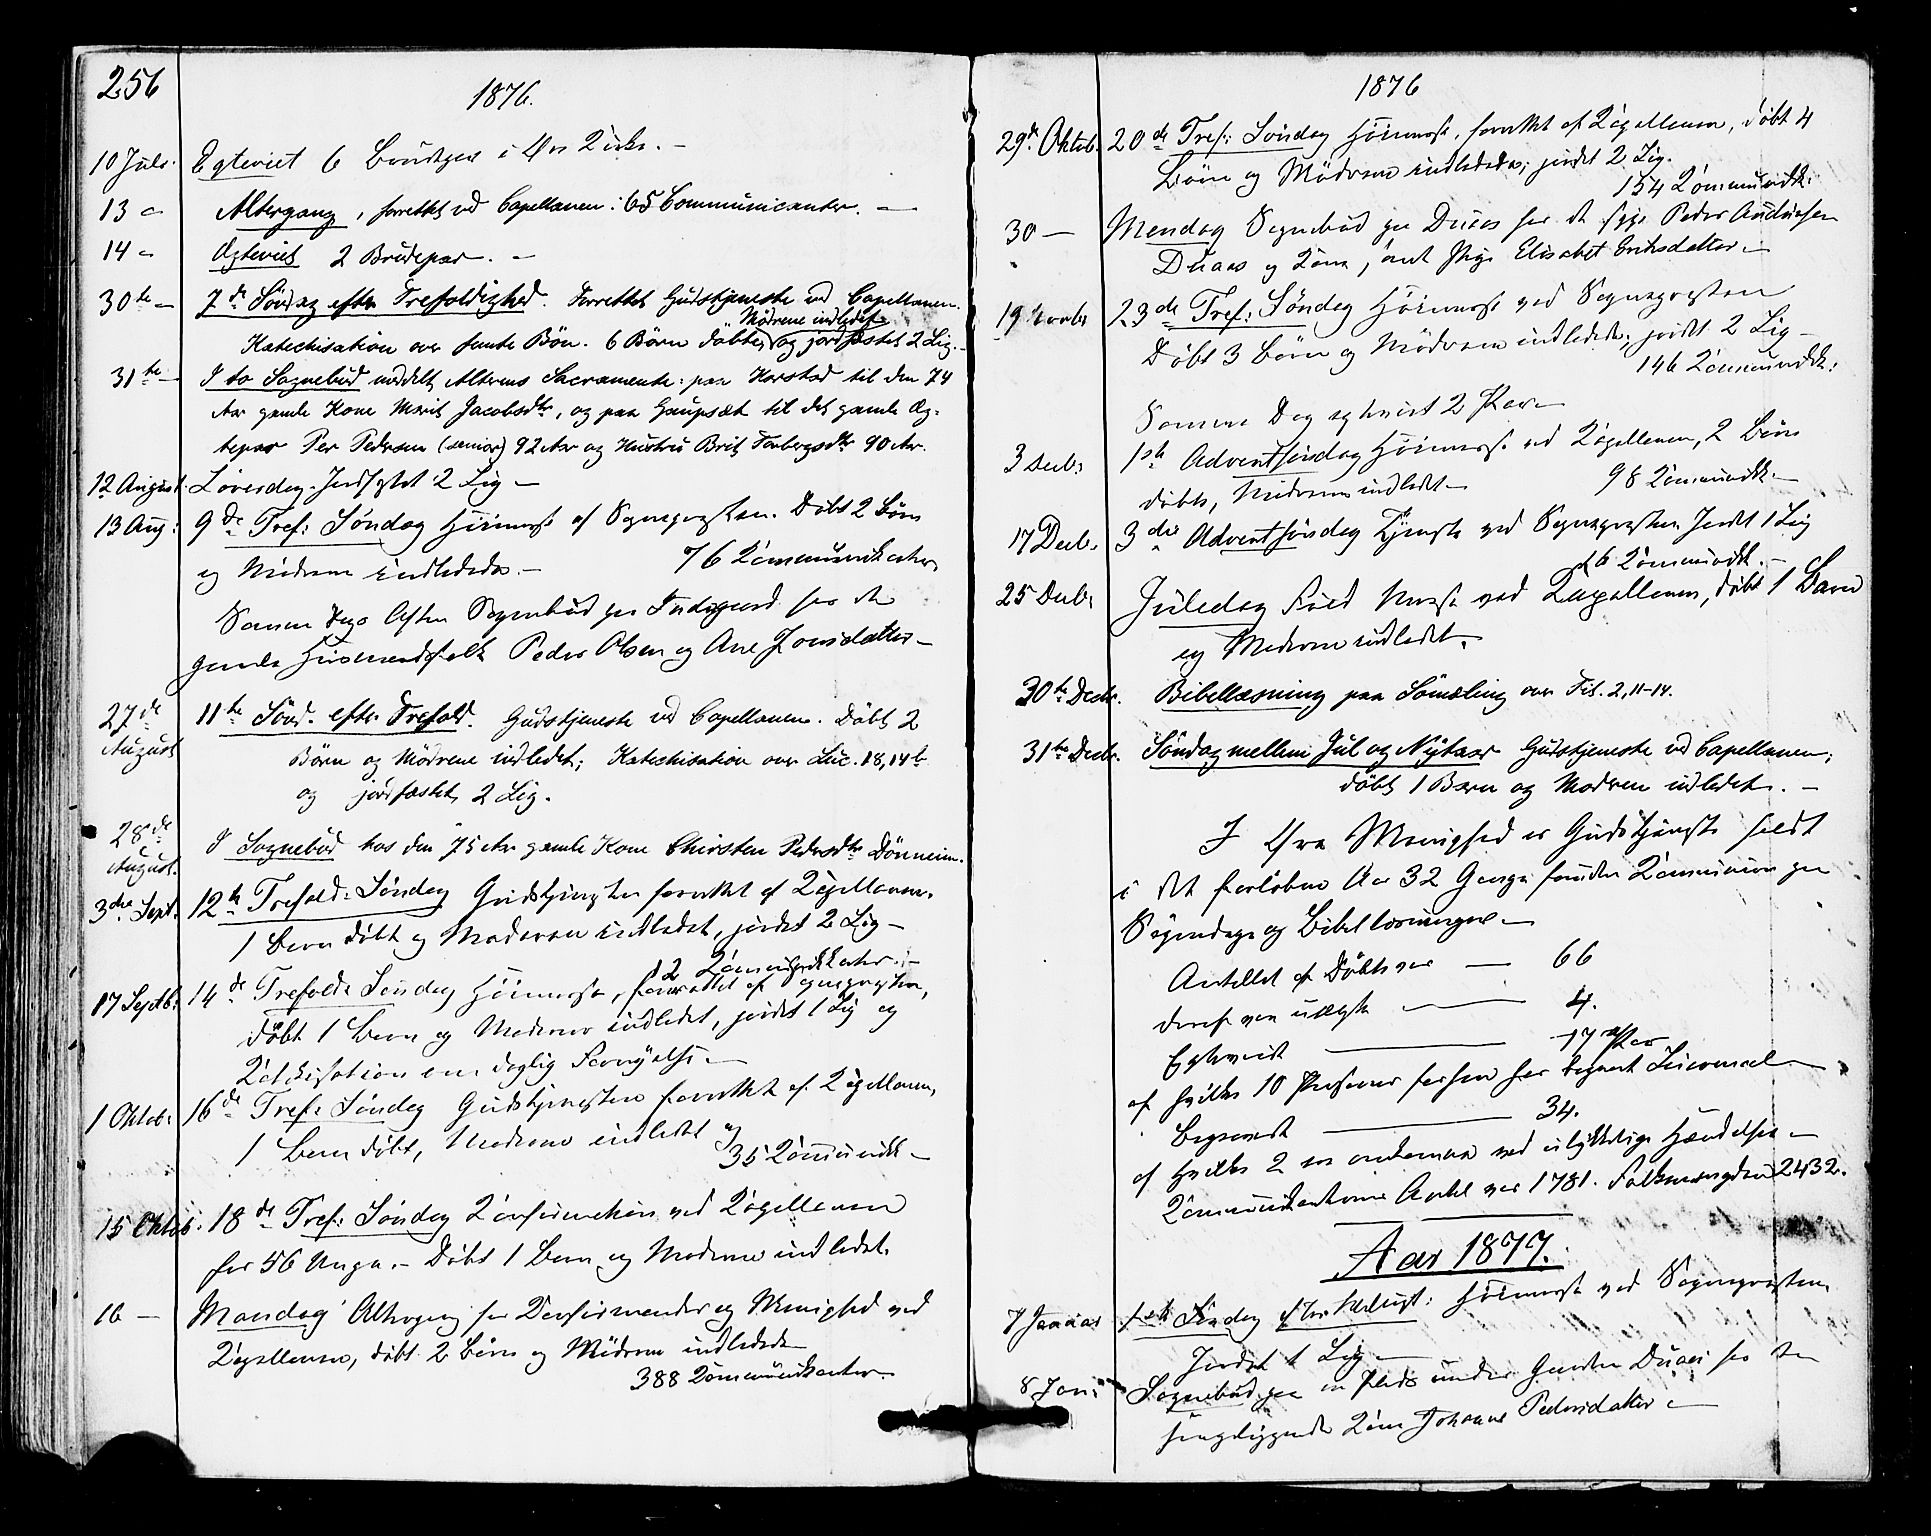 256
1876.
10 Juli. Egteviet 6 Brudepar i Øre Kirke. –
13 – Altergang, forrettet ved Capellanen: 65 Communicanter. –
14 – Ægteviet 2 Brudepar. –
30te – 7de Søndag efter Trefoldighed. Forrettet Gudstjeneste ved Capellanen.
Mødrene indledet
Katechisation over femte Bøn. 6 Børn døbte, og jordfæstet 2 Lig. –
31te – I to Sognebud meddelt Alterens Sacramente: paa Harstad til den 74
Aar gamle Kone Marit Jacobsdtr, og paa Gaupsæt til det gamle Æg-
tepar Per Pedersen (senior) 92 Aar og Hustru Brit Torbergsdtr 90 Aar.
12 August. Løverdag. Jordfæstet 2 Lig –
13 Aug: 9de Tref: Søndag Høimesse af Sognepræsten. Døbt 2 Børn
og Mødrene indledede. – 76 Kommunikanter.
Samme Dags Aften Sognebud paa for de
gamle Huusmandsfolk Peder Olsen og Ane Jonsdatter –
27de August 11te Sönd. efter Trefold. Gudstjeneste ved Capellanen. Döbt 2
Börn og Mödrene indledet; Katechisation over Luc. 18,14b
og jordfæstet 2 Lig.
28de August. I Sognebud hos den 75 Aar gamle Kone Chirsten Pedersdtr Dönneim.
3die Sept. 12te Trefold: Søndag Gudstjenesten forrettet af Kapellanen.
1 Barn døbt og Moderen indledet, jordet 2 Lig –
12 Kommunikanter. –
17 Septb: 14de Trefold: Søndag Høimesse, forrettet af Sognepræsten,
døbt 1 Barn og Moderen indledet, jordet 1 Lig og
Katekisation om daglig Fornyelse –
1 Oktob: 16de Tref: Søndag Gudstjenesten forrettet af Kapellanen,
1 Barn døbt, Moderen indledet og
35 Kommunik –
15 Oktob. 18de Tref: Søndag Konfirmation ved Kapellanen
for 56 Unga. – Døbt 1 Barn og Moderen indledet.
16 – Mandag Altergang for Konfirmander og Menighed ved
Kapellanen, døbt 2 Børn og Mødrene indledede
388 Kommunikanter –
1876
29de Oktob. 20de Tref: Søndag Høimesse, forrettet af Kapellanen, døbt 4
Børn og Mødrene indledede; jordet 2 Lig.
154 Kommunikk:
30 – Mandag Sognebud paa Duaas for de syge Peder
Duaas og Kone, samt Pige Elisabet Eriksdatter –
19 Novbr 23de Tref: Søndag Høimesse ved Sognepræsten
Døbt 3 Børn og Mødrene indledede; jordet 2 Lig –
146 Kommunikk:
Samme Dag egteviet 2 Par –
3 Decb: 1ste Adventssøndag Høimesse ved Kapellanen, 2 Børn
døbte, Mødrene indledet – 98 Kommunikk. –
17 Decb. 3die Adventssøndag Tjeneste ved Sognepræsten Jordet 1 Lig
16 Kommunikk. –
25 Decb: Juledag Messe ved Kapellanen, døbt 1 Barn
og Moderen indledet.
30te Decbr. Bibellæsning paa Sömæling over Tit. 2, 11–14.
31te Decbr. Söndag mellem Jul og Nytaar Gudstjeneste ved Capellanen;
döbt 1 Barn og Moderen indledet. –
I Øre Menighed er Gudstjeneste holdt
i det forløbne Aar 32 Gange foruden Kommunion paa
Søgnedage og Bibellæsninger –
Antallet af Døbte var – 66
deraf var uægte – 4.
Egteviet – 17 Par
af hvilke 10 Personer forhen har begaaet Leiermaal –
Begravet – 34.
af hvilke 2 ere omkomne ved ulykkelige Hændelser –
Kommunikanternes Antal var 1781. Folkemængden 2432.
Aar 1877.
7 Januar 1ste Søndag efter Helligt: Høimesse ved Sognepræsten.
Jordet 1 Lig –
8 Jan: Sognebud paa en Plads under Gaarden Duaas for den
sengeliggende Kone Johanne Pedersdatter –